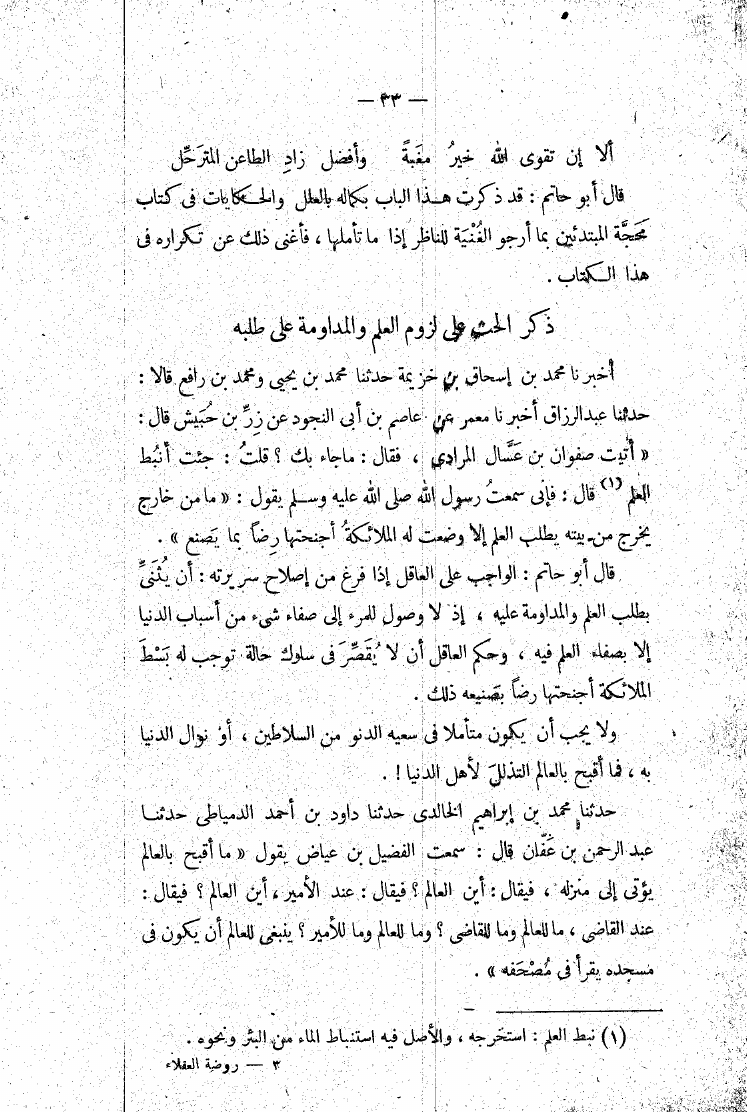 — ٣٣ —
ألا إن تقوى الله خيرُ مغَبةً وأفضل زادِ الظاعن المترَحِّل
قال أبو حاتم : قد ذكرت هـذا الباب بكماله بالعلل والحـكايات فى كتاب
مَحَجَّة المبتدئين بما أرجو الغُنْيَة للناظر إذا ما تأملها ، فأغنى ذلك عن تكراره فى
هذا الـكتاب .
ذكر الحث على لزوم العلم والمداومة على طلبه
أخبرنا محمد بن إسحاق بن خزيمة حدثنا محمد بن يحيى ومحمد بن رافع قالا :
حدثنا عبدالرزاق أخبرنا معمر عن عاصم بن أبى النجود عن زِرِّ بن حُبَيش قال :
« أتيت صفوان بن عَسَّال المرادى ، فقال : ماجاء بك ؟ قلتُ : جئت أنبُط
العلم (١) قال : فإنى سمعتُ رسول الله صلى الله عليه وسـلم يقول : « ما من خارج
يخرج من بيته يطلب العلم إلا وضعت له الملائكةُ أجنحتها رضاً بما يَصنع » .
قال أبو حاتم : الواجب على العاقل إذا فرغ من إصلاح سريرته : أن يُثنىِّ
بطلب العلم والمداومة عليه ، إذ لا وصول للمرء إلى صفاء شىء من أسباب الدنيا
إلا بصفاء العلم فيه ، وحكم العاقل أن لا يُقَصِّرَ فى سلوك حالة توجب له بَسْطَ
الملائـكة أجنحتها رضاً بصنيعه ذلك .
ولا يجب أن يكون متأملا فى سعيه الدنو من السلاطين ، أو نوال الدنيا
به ، فما أقبح بالعالم التذللَ لأهل الدنيا ! .
حدثنا محمد بن إبراهيم الخالدى حدثنا داود بن أحمد الدمياطى حدثنـا
عبد الرحمن بن عَفّان قال : سمعت الفضيل بن عياض يقول « ما أقبح بالعالم
يؤتى إلى منزله ، فيقال : أين العالم ؟ فيقال : عند الأمير ، أين العالم ؟ فيقال :
عند القاضى ، ما للعالم وما للقاضى ؟ وما للعالم وما للأمير ؟ ينبغى للعالم أن يكون فى
مسجده يقرأ فى مُصْحَفه » .
(١) نبط العلم : استخرجه ، والأصل فيه استنباط الماء من البئر ونحوه .
٣ — روضة العقلاء